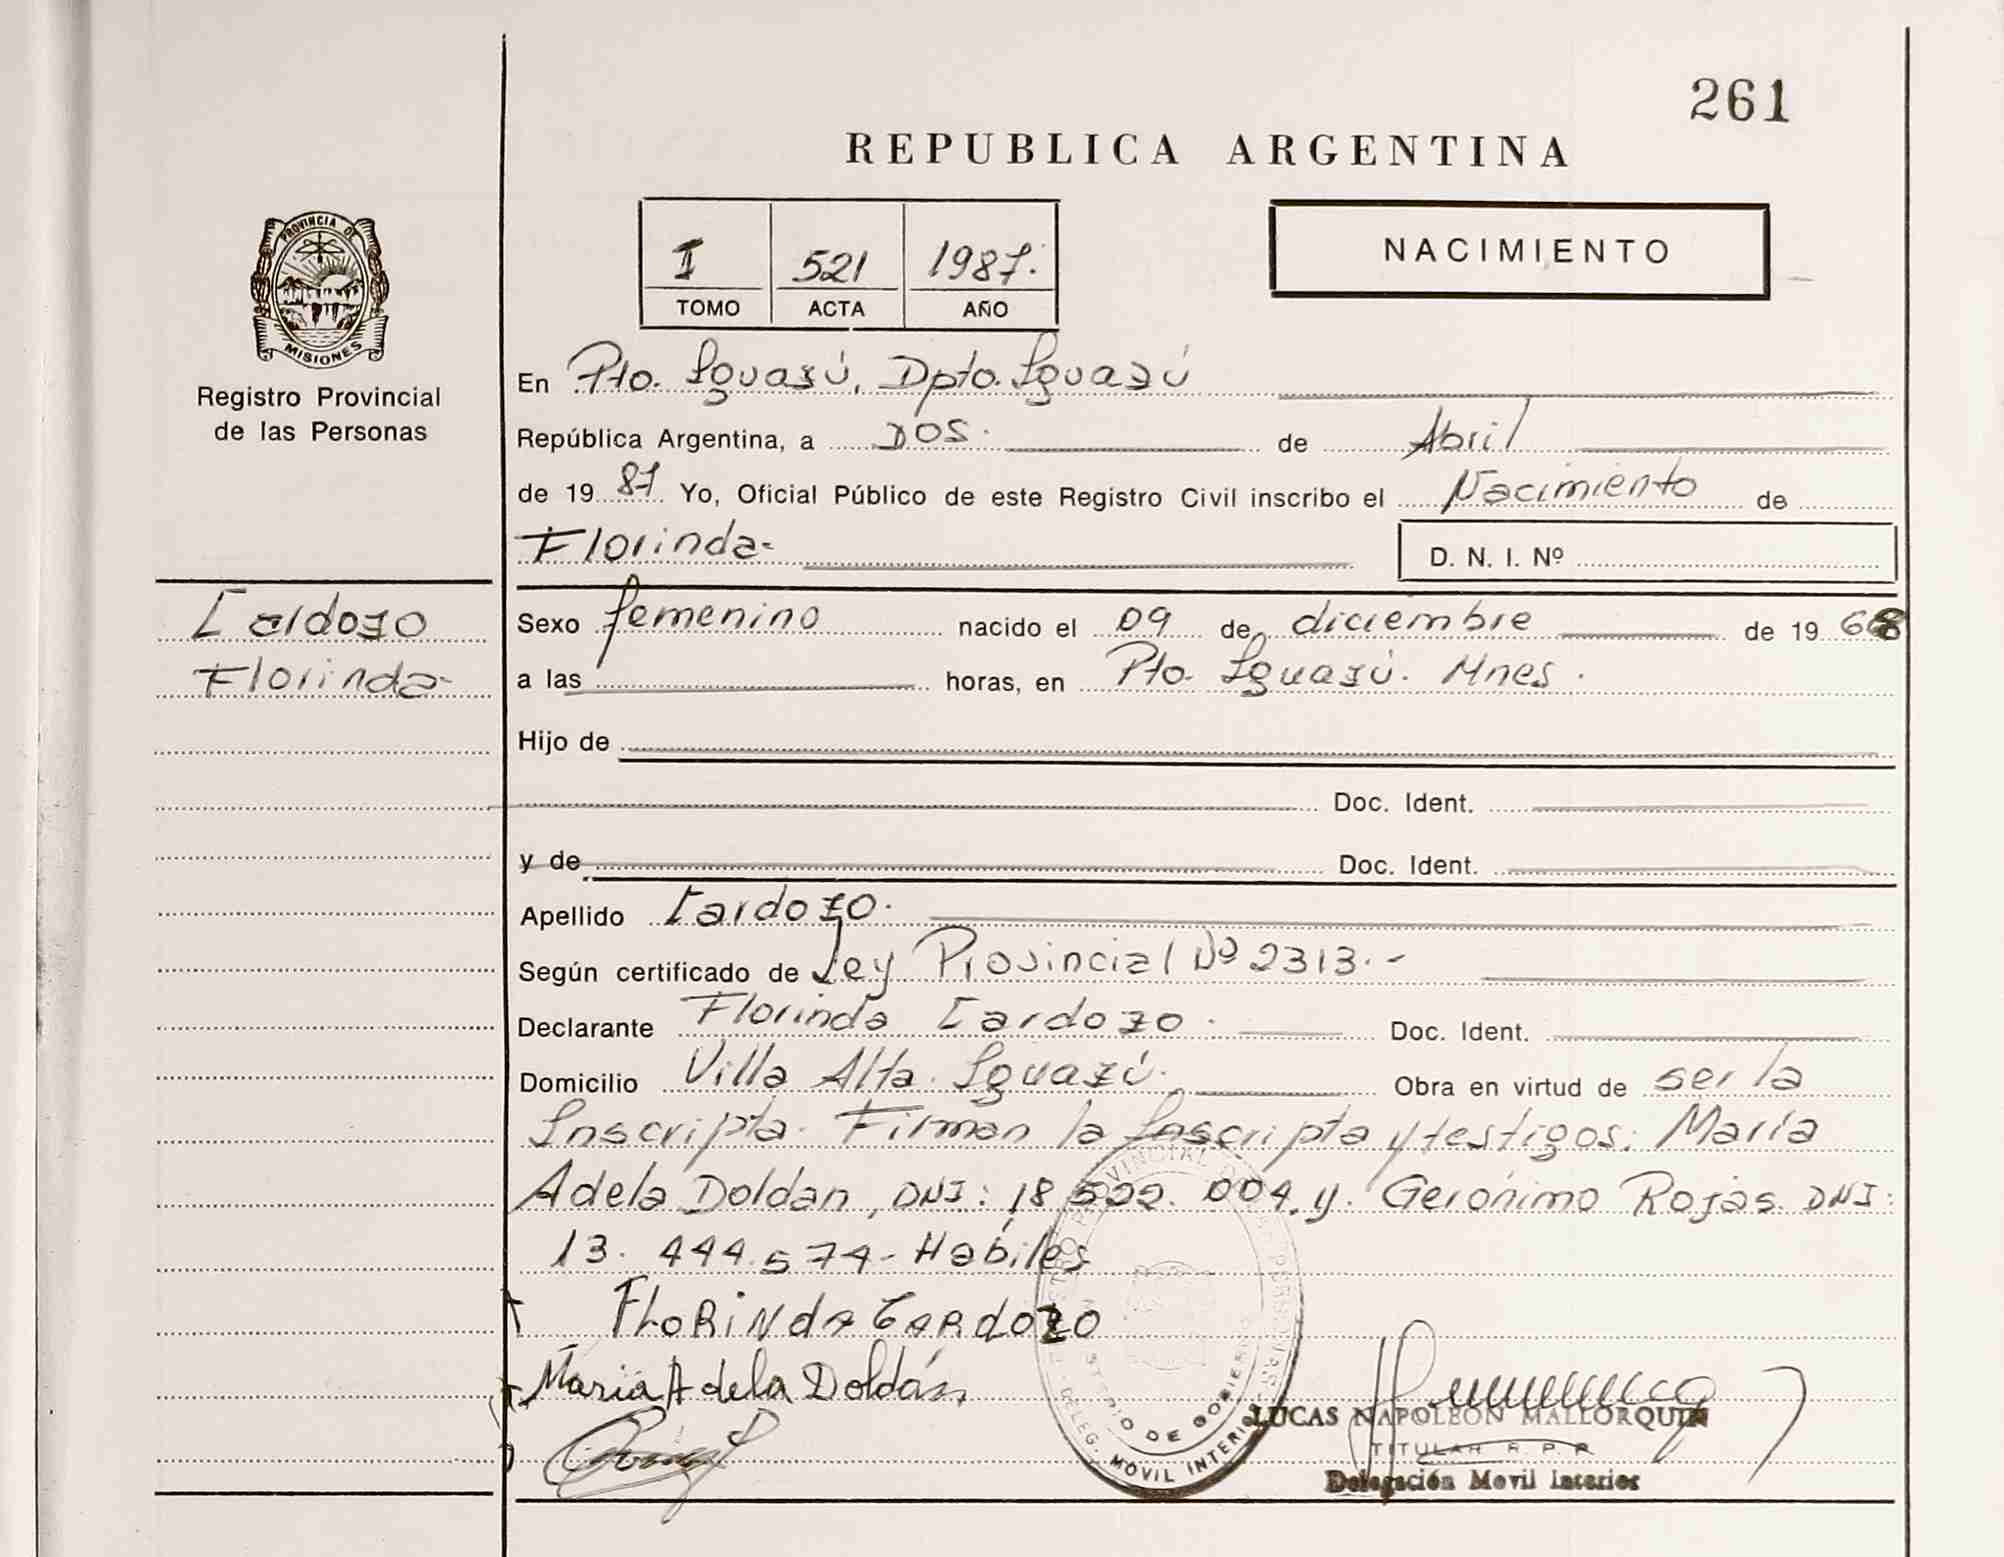 261
REPUBLICA ARGENTINA
I 521 1987.
TOMO ACTA AÑO
NACIMIENTO
PROVINCIA DE
MISIONES
Registro Provincial
de las Personas
En Pto. Iguazú, Dpto. Iguazú
República Argentina, a DOS. de Abril
de 19 87 Yo, Oficial Público de este Registro Civil inscribo el Nacimiento de
Florinda-
D. N. I. Nº
Cardozo
Florinda-
Sexo femenino nacido el 09 de diciembre de 19 68
a las horas, en Pto. Iguazú. Mnes.
Hijo de
Doc. Ident.
y de Doc. Ident.
Apellido Cardozo.
Según certificado de Ley Provincial Nº 2313.-
Declarante Florinda Cardozo. Doc. Ident.
Domicilio Villa Alta. Iguazú. Obra en virtud de ser la
Inscripta. Firman la Inscripta y testigos: María
Adela Doldan, DNI: 18.522.004, y. Gerónimo Rojas. DNI:
13.444.574- Habiles
FLORINdA CARDOZO
María Adela Doldán
LUCAS NAPOLEON MALLORQUIN
TITULAR R. P. P.
Delegación Movil Interior
MINISTERIO DE GOBIERNO
DELEG. MOVIL INTERIOR